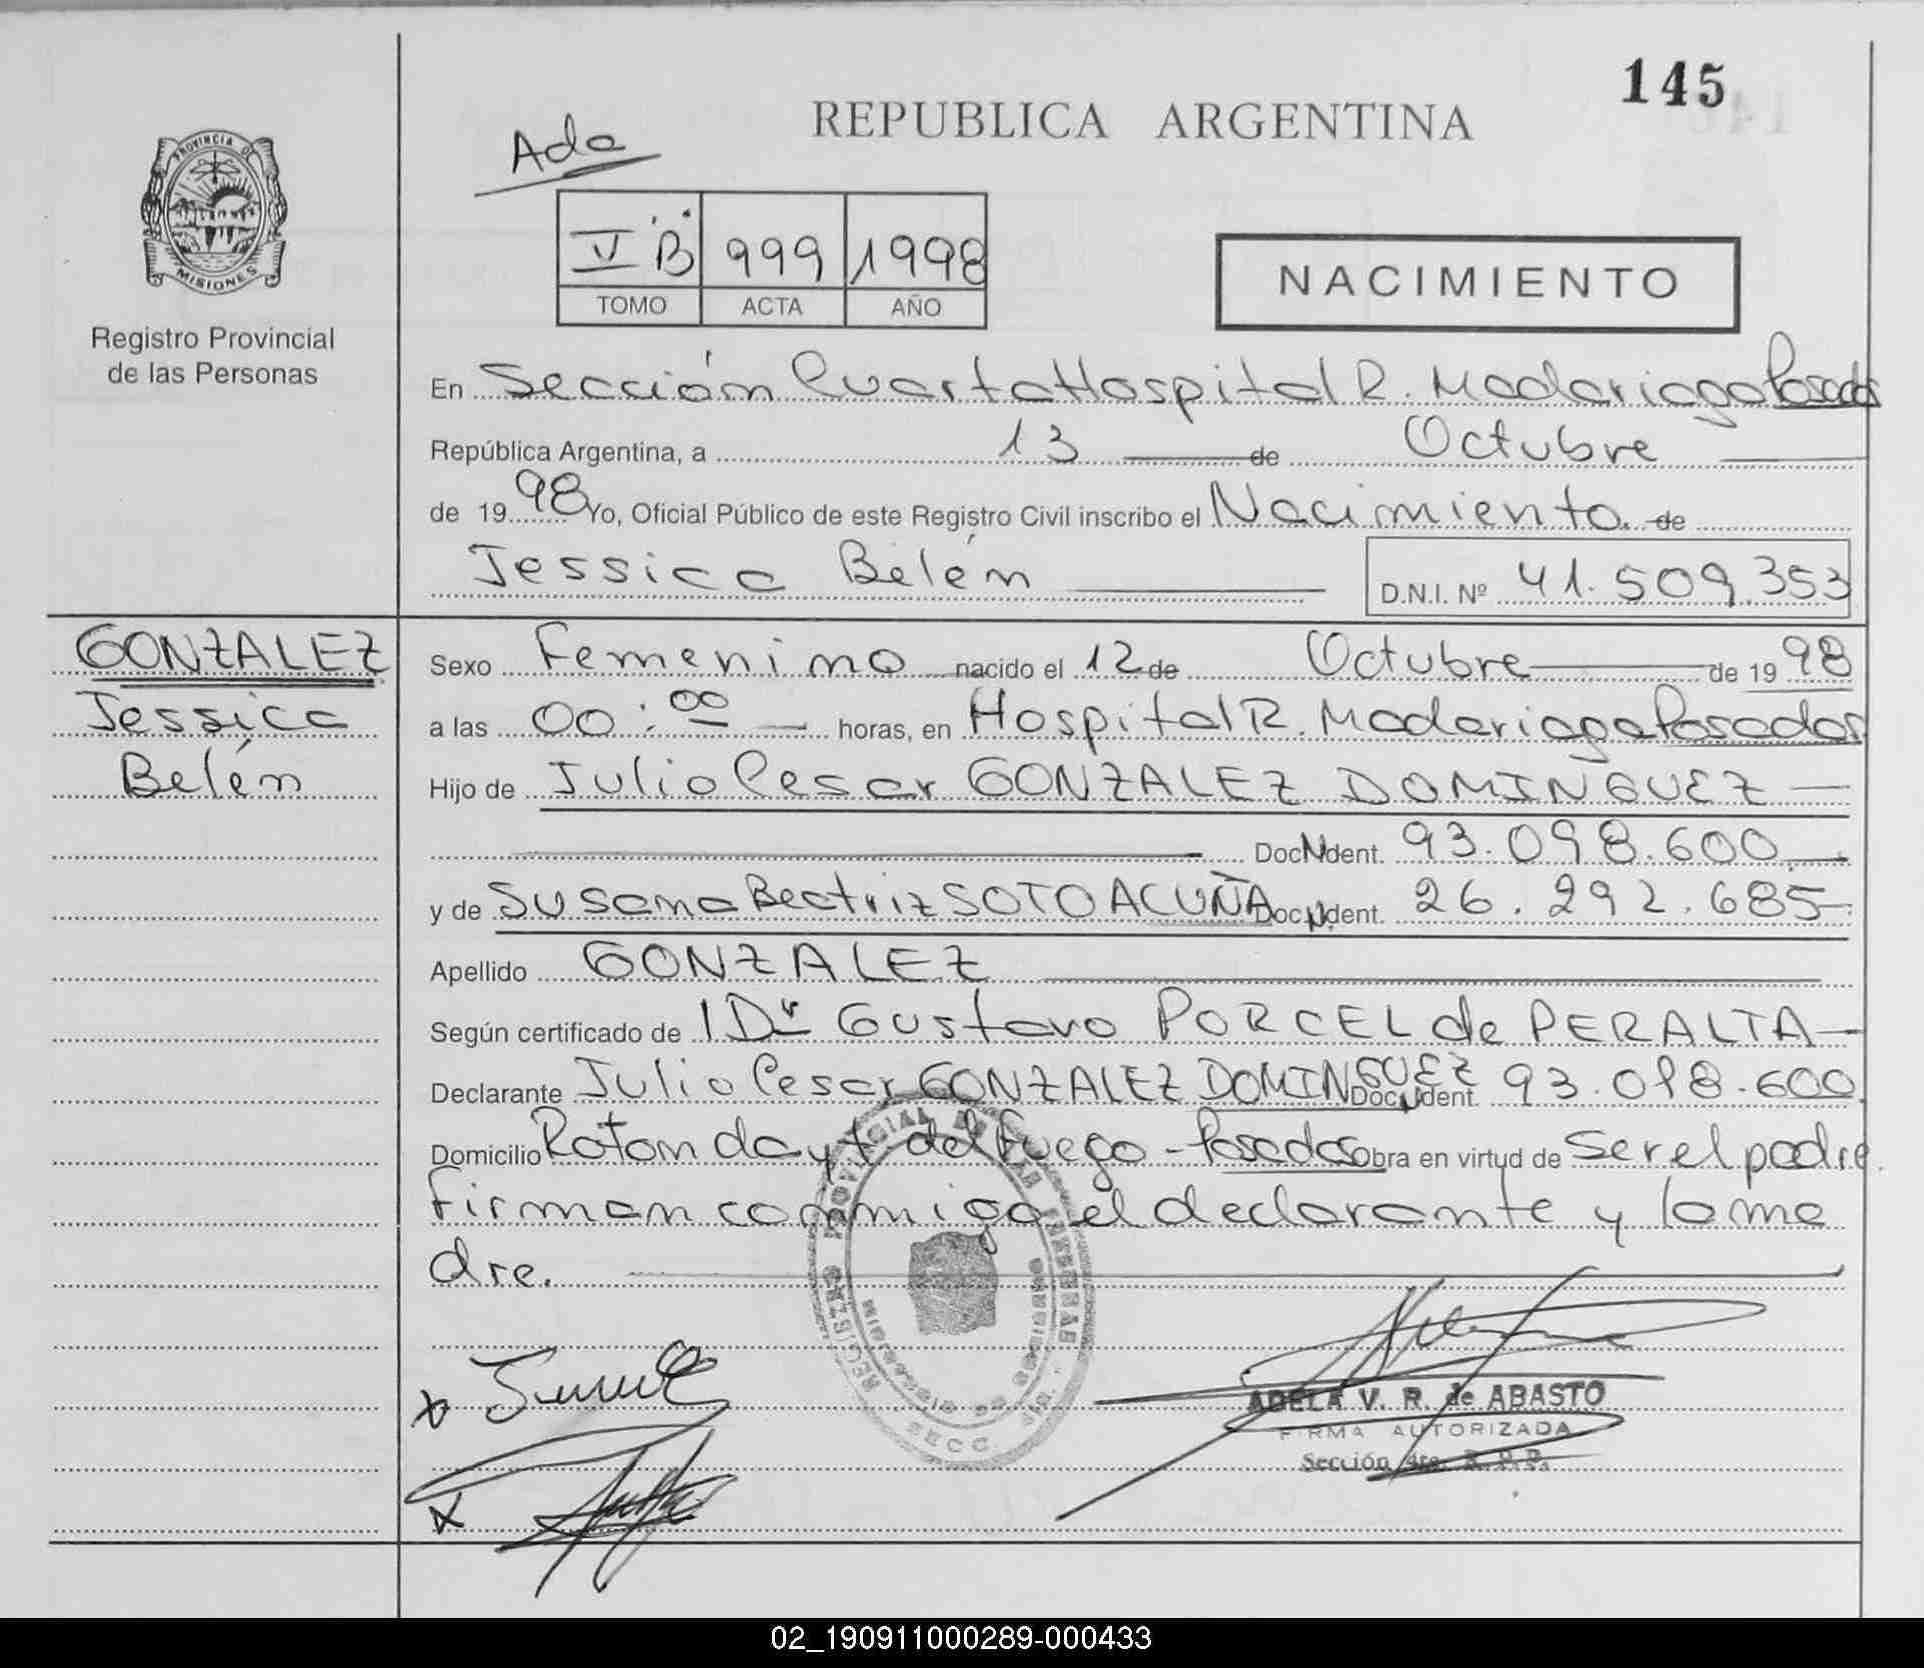 145
REPUBLICA ARGENTINA
Ada
PROVINCIA DE
MISIONES
Registro Provincial
de las Personas
V B 999 1998
TOMO ACTA AÑO
NACIMIENTO
En Sección Cuarta Hospital R. Madariaga Posadas
República Argentina, a 13 de Octubre
de 1998 Yo, Oficial Público de este Registro Civil inscribo el Nacimiento de
Jessica Belén D.N.I. Nº 41.509.353
GONZALEZ
Jessica
Belén
Sexo Femenino nacido el 12 de Octubre de 1998
a las 00:00 horas, en Hospital R. Madariaga Posadas
Hijo de Julio Cesar GONZALEZ DOMINGUEZ
Doc. Ident. 93.098.600
y de Susana Beatriz SOTO ACUÑA Doc. Ident. 26.292.685
Apellido GONZALEZ
Según certificado de Dr Gustavo PORCEL de PERALTA
Declarante Julio Cesar GONZALEZ DOMINGUEZ Doc. Ident. 93.098.600
Domicilio Rotonda y T. del Fuego - Posadas Obra en virtud de ser el padre
Firman conmigo el declarante y la ma
dre.
ADELA V. R. de ABASTO
FIRMA AUTORIZADA
Sección 4ta. R. P. P.
02_190911000289-000433